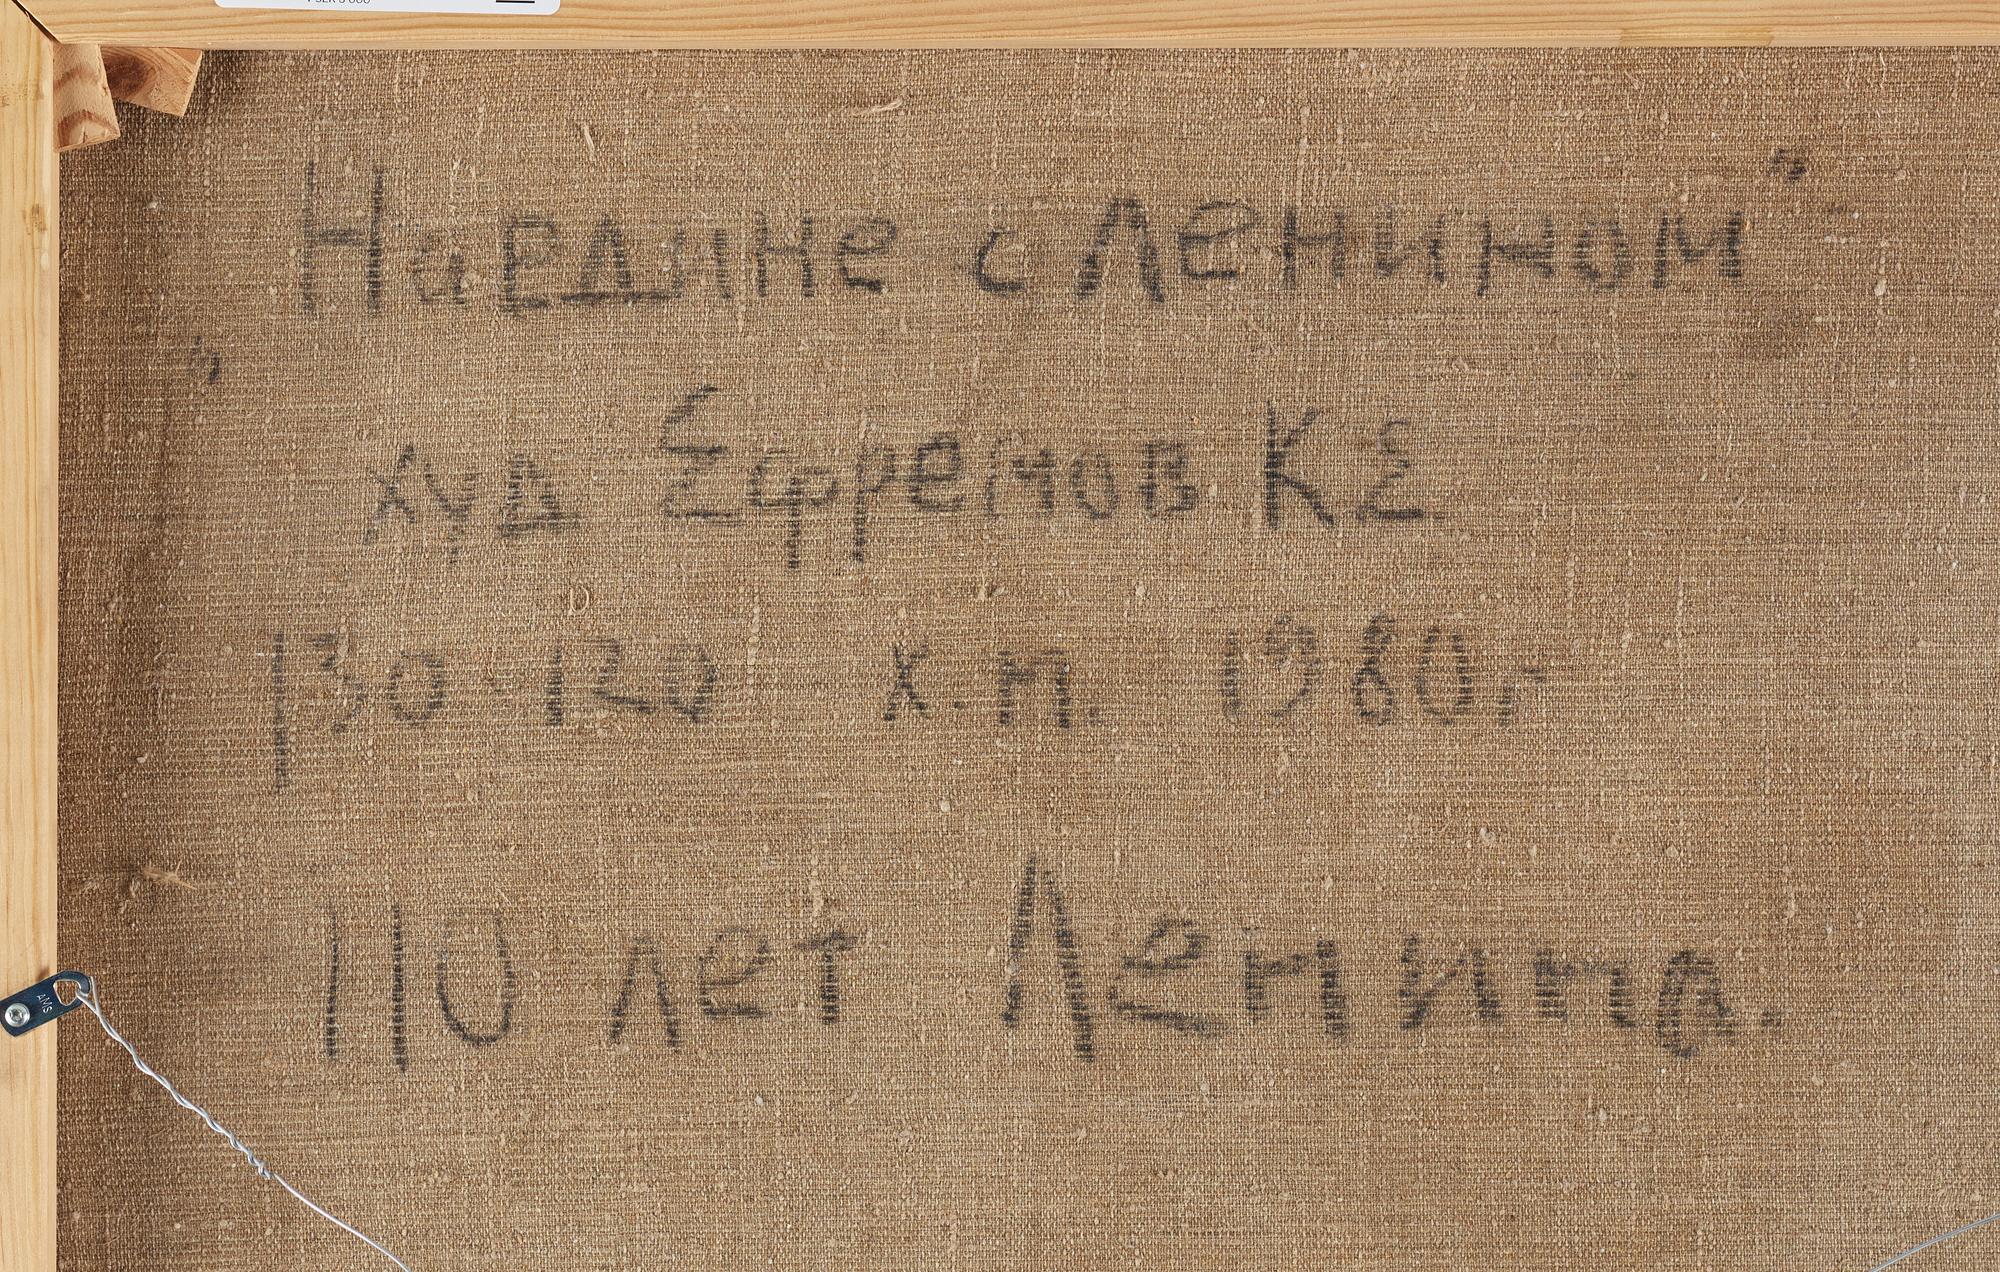 Наедине с Лениным"
"
худ Ефремов К Е
130·120 х.м. 1980г
110 лет Ленина.
AMS